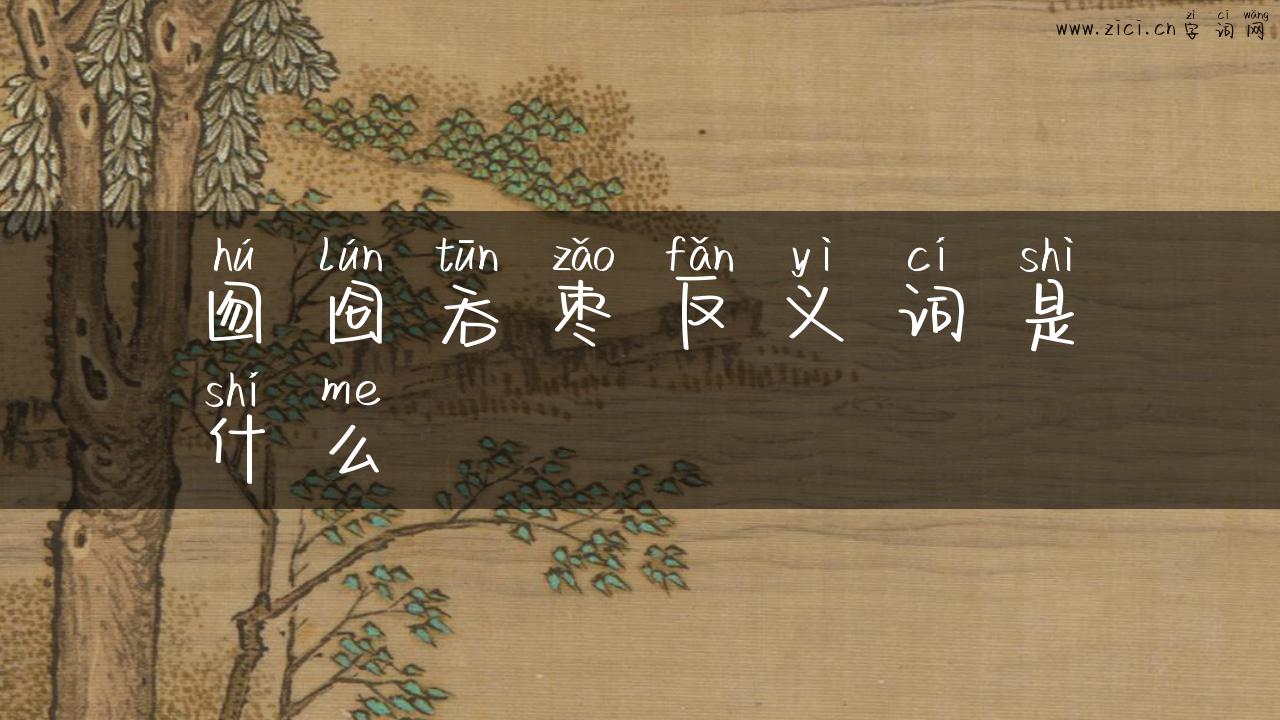 zì cí wǎng
www.zici.cn 字词网
hú lún tūn zǎo fǎn yì cí shì
囫囵吞枣反义词是
shí me
什么